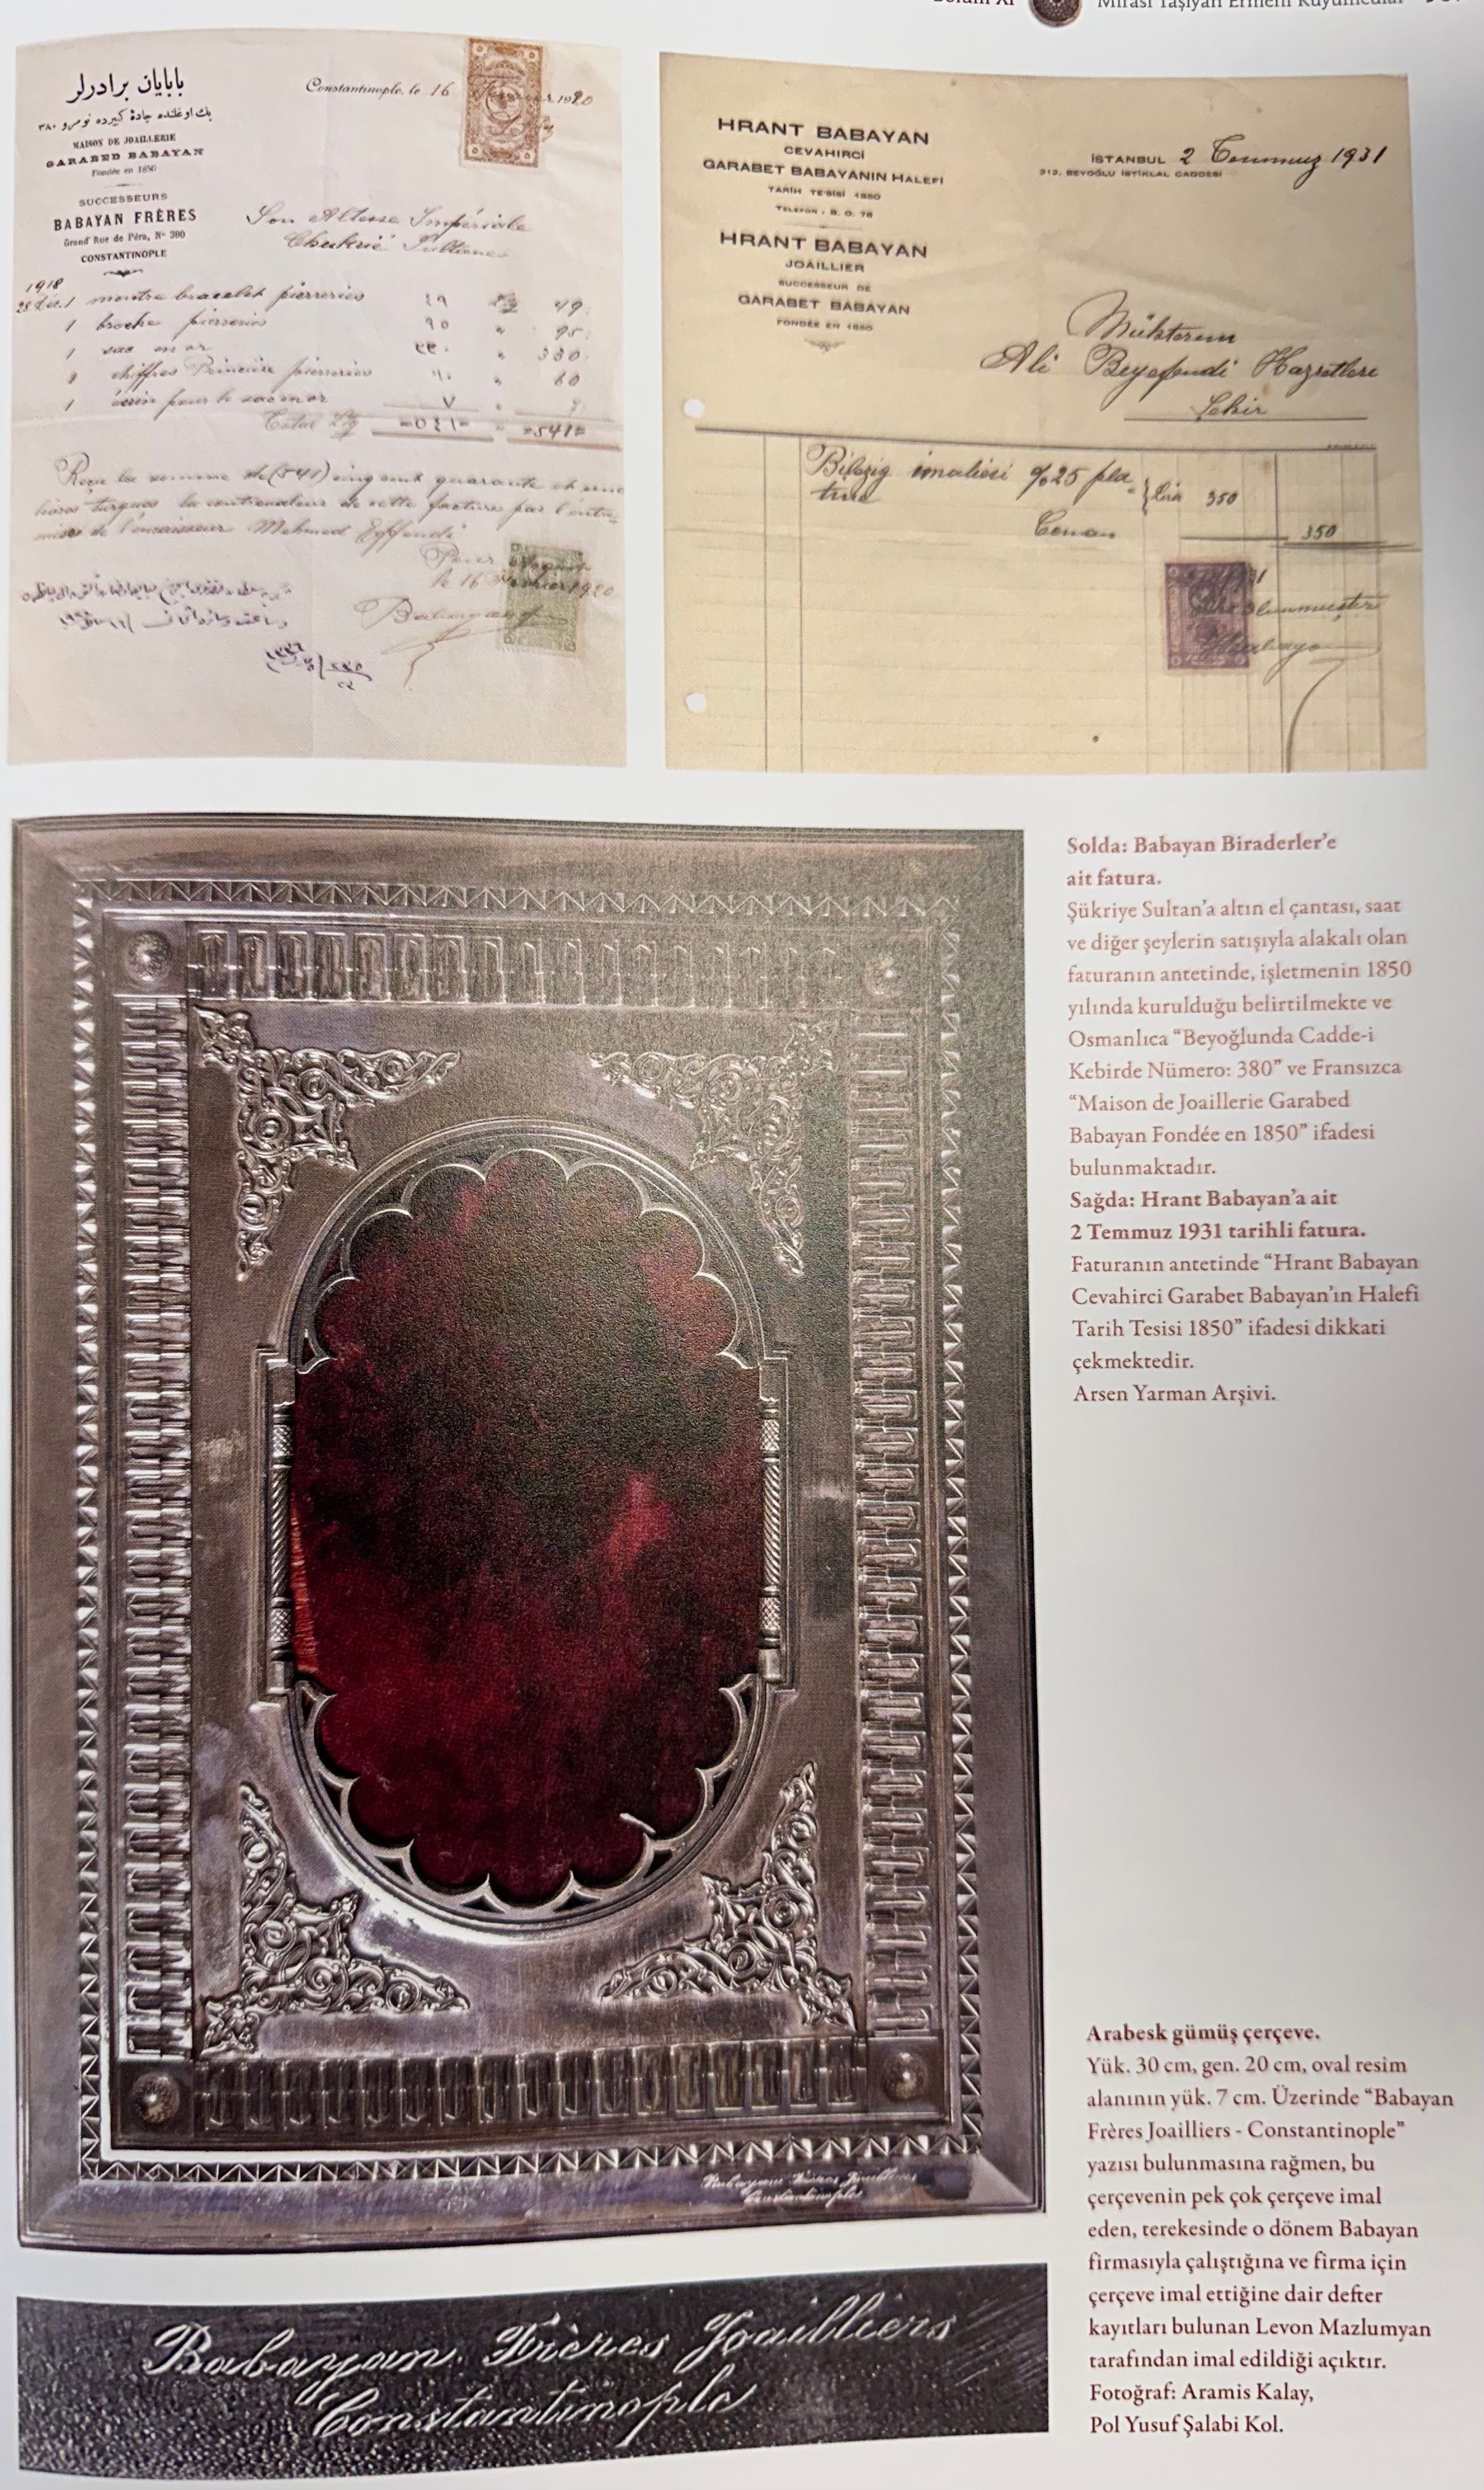 Mirası Taşıyan Ermeni Kuyumcular
بابايان برادرلر
بك اوغلنده جادۀ كبيرده نومرو ٣٨٠
MAISON DE JOAILLERIE
GARABED BABAYAN
Fondée en 1850
SUCCESSEURS
BABAYAN FRÈRES
Grand' Rue de Péra, No 380
CONSTANTINOPLE
Constantinople, le 16 1920
Son Altesse Impériale
Chukrié Sultane
1918
28 Déc. 1 montre bracelet pierreries ٤٩ 49
1 broche pierreries ٩٥ " 95
1 sac en or ٣٣٠ " 330
1 chiffres Princière pierreries ٦٠ " 60
1 écrin pour le sac en or ٧ " 7
Total =٥٤١= " =541=
Reçu la somme de (541) cinq cent quarante et une
livres turques la contrevaleur de cette facture par l'entre-
mise de l'encaisseur Mehmed Effendi
le 16 1920
HRANT BABAYAN
CEVAHİRCİ
GARABET BABAYANIN HALEFİ
TARİH TE'SİSİ 1850
TELEFON : B. O. 76
HRANT BABAYAN
JOAILLIER
SUCCESSEUR DE
GARABET BABAYAN
FONDÉE EN 1850
İSTANBUL 2 Temmuz 1931
BEYOĞLU İSTİKLAL CADDESİ
Muhterem
Ali Beyefendi Hazretleri
Şehir
Bilezig imaliesi %25 pla-
tine Lira 350
350
Solda: Babayan Biraderler’e
ait fatura.
Şükriye Sultan’a altın el çantası, saat
ve diğer şeylerin satışıyla alakalı olan
faturanın antetinde, işletmenin 1850
yılında kurulduğu belirtilmekte ve
Osmanlıca “Beyoğlunda Cadde-i
Kebirde Nümero: 380” ve Fransızca
“Maison de Joaillerie Garabed
Babayan Fondée en 1850” ifadesi
bulunmaktadır.
Sağda: Hrant Babayan’a ait
2 Temmuz 1931 tarihli fatura.
Faturanın antetinde “Hrant Babayan
Cevahirci Garabet Babayan’ın Halefi
Tarih Tesisi 1850” ifadesi dikkati
çekmektedir.
Arsen Yarman Arşivi.
Arabesk gümüş çerçeve.
Yük. 30 cm, gen. 20 cm, oval resim
alanının yük. 7 cm. Üzerinde “Babayan
Frères Joailliers - Constantinople”
yazısı bulunmasına rağmen, bu
çerçevenin pek çok çerçeve imal
eden, terekesinde o dönem Babayan
firmasıyla çalıştığına ve firma için
çerçeve imal ettiğine dair defter
kayıtları bulunan Levon Mazlumyan
tarafından imal edildiği açıktır.
Fotoğraf: Aramis Kalay,
Pol Yusuf Şalabi Kol.
Babayan Frères Joailliers
Constantinople
Babayan Frères Joailliers
Constantinople